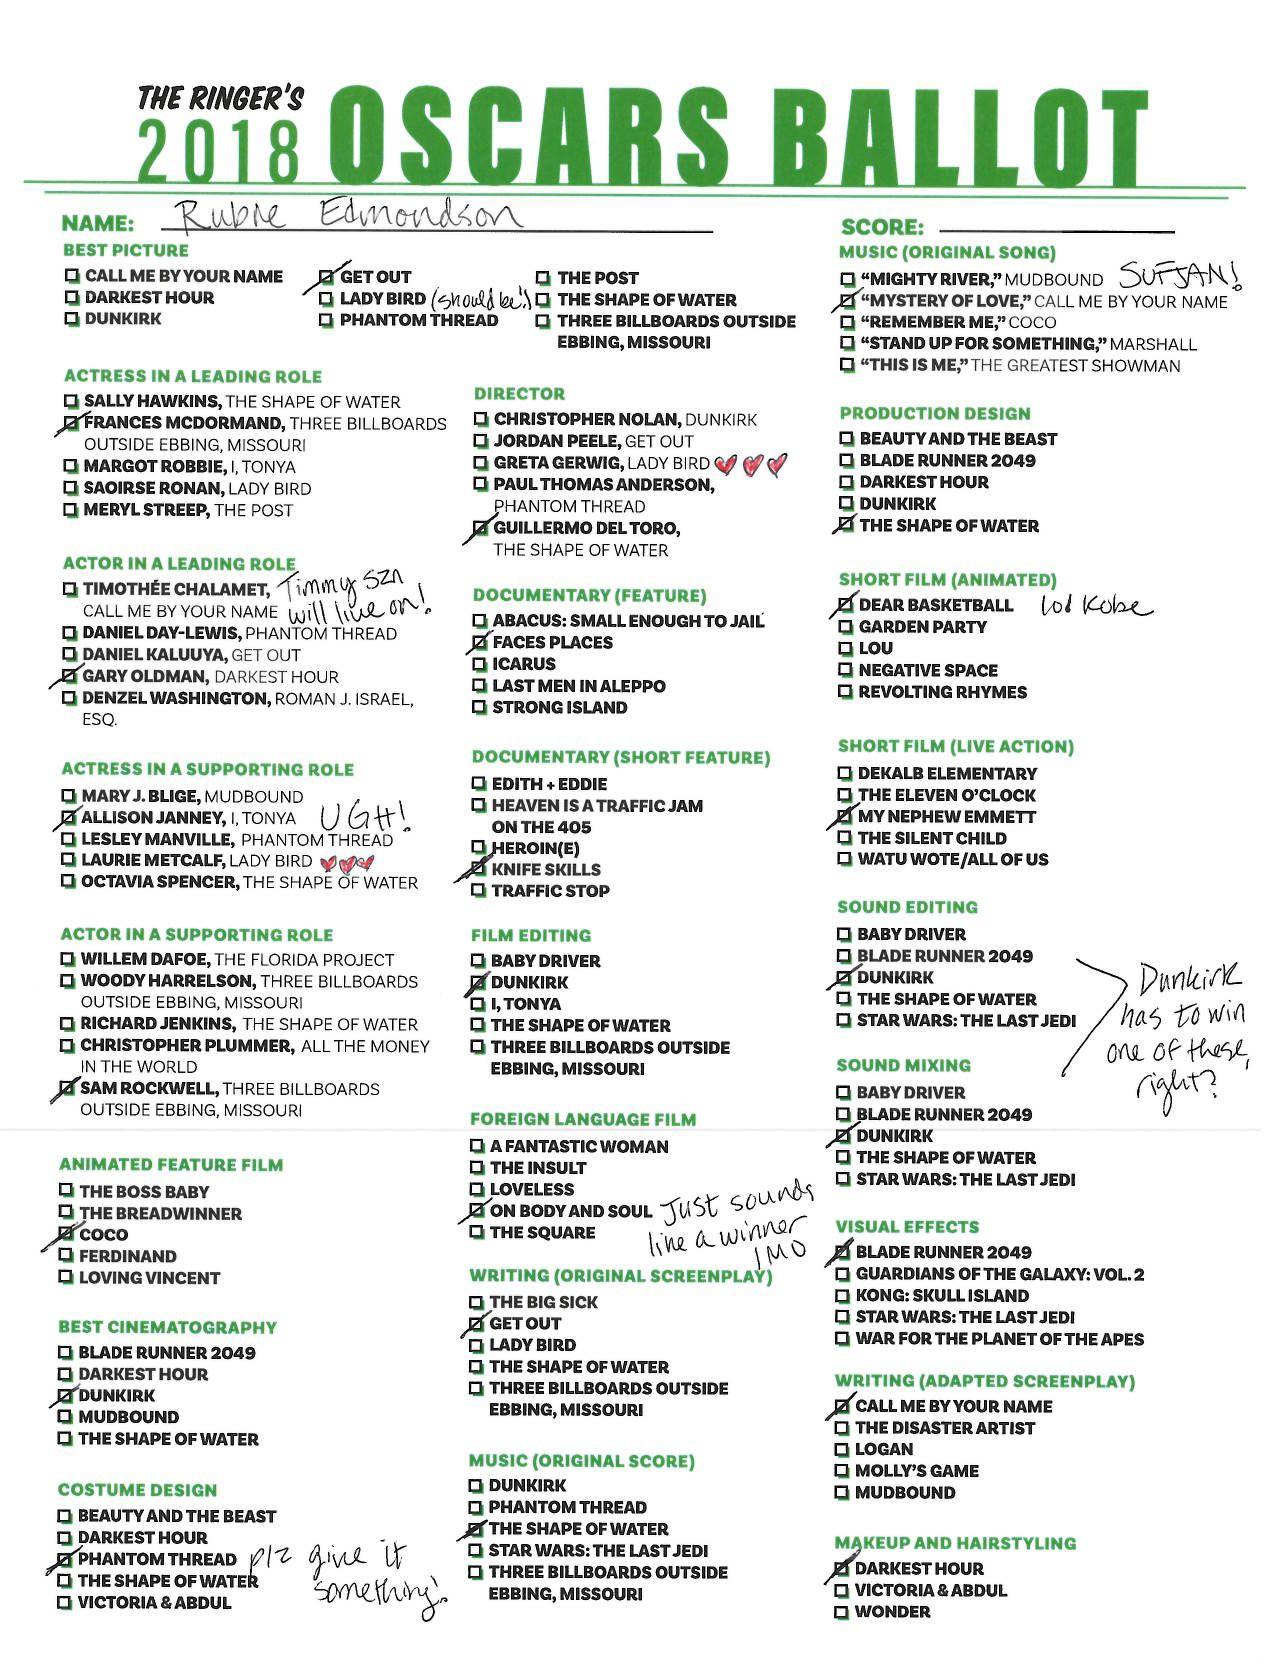 THE RINGER'S
2018 OSCARS BALLOT
NAME: Rubie Edmondson
SCORE:
BEST PICTURE
CALL ME BY YOUR NAME
DARKEST HOUR
DUNKIRK
GET OUT
LADY BIRD (should be!)
PHANTOM THREAD
THE POST
THE SHAPE OF WATER
THREE BILLBOARDS OUTSIDE
EBBING, MISSOURI
ACTRESS IN A LEADING ROLE
SALLY HAWKINS, THE SHAPE OF WATER
FRANCES MCDORMAND, THREE BILLBOARDS
OUTSIDE EBBING, MISSOURI
MARGOT ROBBIE, I, TONYA
SAOIRSE RONAN, LADY BIRD
MERYL STREEP, THE POST
ACTOR IN A LEADING ROLE
TIMOTHÉE CHALAMET, Timmy SZN
CALL ME BY YOUR NAME will live on!
DANIEL DAY-LEWIS, PHANTOM THREAD
DANIEL KALUUYA, GET OUT
GARY OLDMAN, DARKEST HOUR
DENZEL WASHINGTON, ROMAN J. ISRAEL,
ESQ.
ACTRESS IN A SUPPORTING ROLE
MARY J. BLIGE, MUDBOUND
ALLISON JANNEY, I, TONYA UGH!
LESLEY MANVILLE, PHANTOM THREAD
LAURIE METCALF, LADY BIRD
OCTAVIA SPENCER, THE SHAPE OF WATER
ACTOR IN A SUPPORTING ROLE
WILLEM DAFOE, THE FLORIDA PROJECT
WOODY HARRELSON, THREE BILLBOARDS
OUTSIDE EBBING, MISSOURI
RICHARD JENKINS, THE SHAPE OF WATER
CHRISTOPHER PLUMMER, ALL THE MONEY
IN THE WORLD
SAM ROCKWELL, THREE BILLBOARDS
OUTSIDE EBBING, MISSOURI
ANIMATED FEATURE FILM
THE BOSS BABY
THE BREADWINNER
COCO
FERDINAND
LOVING VINCENT
BEST CINEMATOGRAPHY
BLADE RUNNER 2049
DARKEST HOUR
DUNKIRK
MUDBOUND
THE SHAPE OF WATER
COSTUME DESIGN
BEAUTY AND THE BEAST
DARKEST HOUR
PHANTOM THREAD plz give it
THE SHAPE OF WATER something!
VICTORIA & ABDUL
DIRECTOR
CHRISTOPHER NOLAN, DUNKIRK
JORDAN PEELE, GET OUT
GRETA GERWIG, LADY BIRD
PAUL THOMAS ANDERSON,
PHANTOM THREAD
GUILLERMO DEL TORO,
THE SHAPE OF WATER
DOCUMENTARY (FEATURE)
ABACUS: SMALL ENOUGH TO JAIL
FACES PLACES
ICARUS
LAST MEN IN ALEPPO
STRONG ISLAND
DOCUMENTARY (SHORT FEATURE)
EDITH + EDDIE
HEAVEN IS A TRAFFIC JAM
ON THE 405
HEROIN(E)
KNIFE SKILLS
TRAFFIC STOP
FILM EDITING
BABY DRIVER
DUNKIRK
I, TONYA
THE SHAPE OF WATER
THREE BILLBOARDS OUTSIDE
EBBING, MISSOURI
FOREIGN LANGUAGE FILM
A FANTASTIC WOMAN
THE INSULT
LOVELESS
ON BODY AND SOUL Just sounds
THE SQUARE like a winner
IMO
WRITING (ORIGINAL SCREENPLAY)
THE BIG SICK
GET OUT
LADY BIRD
THE SHAPE OF WATER
THREE BILLBOARDS OUTSIDE
EBBING, MISSOURI
MUSIC (ORIGINAL SCORE)
DUNKIRK
PHANTOM THREAD
THE SHAPE OF WATER
STAR WARS: THE LAST JEDI
THREE BILLBOARDS OUTSIDE
EBBING, MISSOURI
MUSIC (ORIGINAL SONG)
"MIGHTY RIVER," MUDBOUND SUFJAN!
"MYSTERY OF LOVE," CALL ME BY YOUR NAME
"REMEMBER ME," COCO
"STAND UP FOR SOMETHING," MARSHALL
"THIS IS ME," THE GREATEST SHOWMAN
PRODUCTION DESIGN
BEAUTY AND THE BEAST
BLADE RUNNER 2049
DARKEST HOUR
DUNKIRK
THE SHAPE OF WATER
SHORT FILM (ANIMATED)
DEAR BASKETBALL lol Kobe
GARDEN PARTY
LOU
NEGATIVE SPACE
REVOLTING RHYMES
SHORT FILM (LIVE ACTION)
DEKALB ELEMENTARY
THE ELEVEN O'CLOCK
MY NEPHEW EMMETT
THE SILENT CHILD
WATU WOTE/ALL OF US
SOUND EDITING
BABY DRIVER
BLADE RUNNER 2049
DUNKIRK
THE SHAPE OF WATER
STAR WARS: THE LAST JEDI
Dunkirk
has to win
one of these,
right?
SOUND MIXING
BABY DRIVER
BLADE RUNNER 2049
DUNKIRK
THE SHAPE OF WATER
STAR WARS: THE LAST JEDI
VISUAL EFFECTS
BLADE RUNNER 2049
GUARDIANS OF THE GALAXY: VOL. 2
KONG: SKULL ISLAND
STAR WARS: THE LAST JEDI
WAR FOR THE PLANET OF THE APES
WRITING (ADAPTED SCREENPLAY)
CALL ME BY YOUR NAME
THE DISASTER ARTIST
LOGAN
MOLLY'S GAME
MUDBOUND
MAKEUP AND HAIRSTYLING
DARKEST HOUR
VICTORIA & ABDUL
WONDER